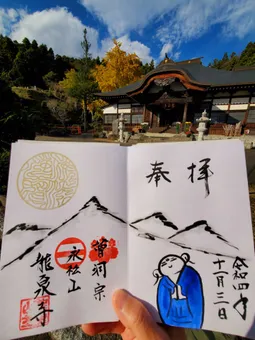 奉拝
令和四年
十一月三日
曹洞宗
永松山
龍泉寺